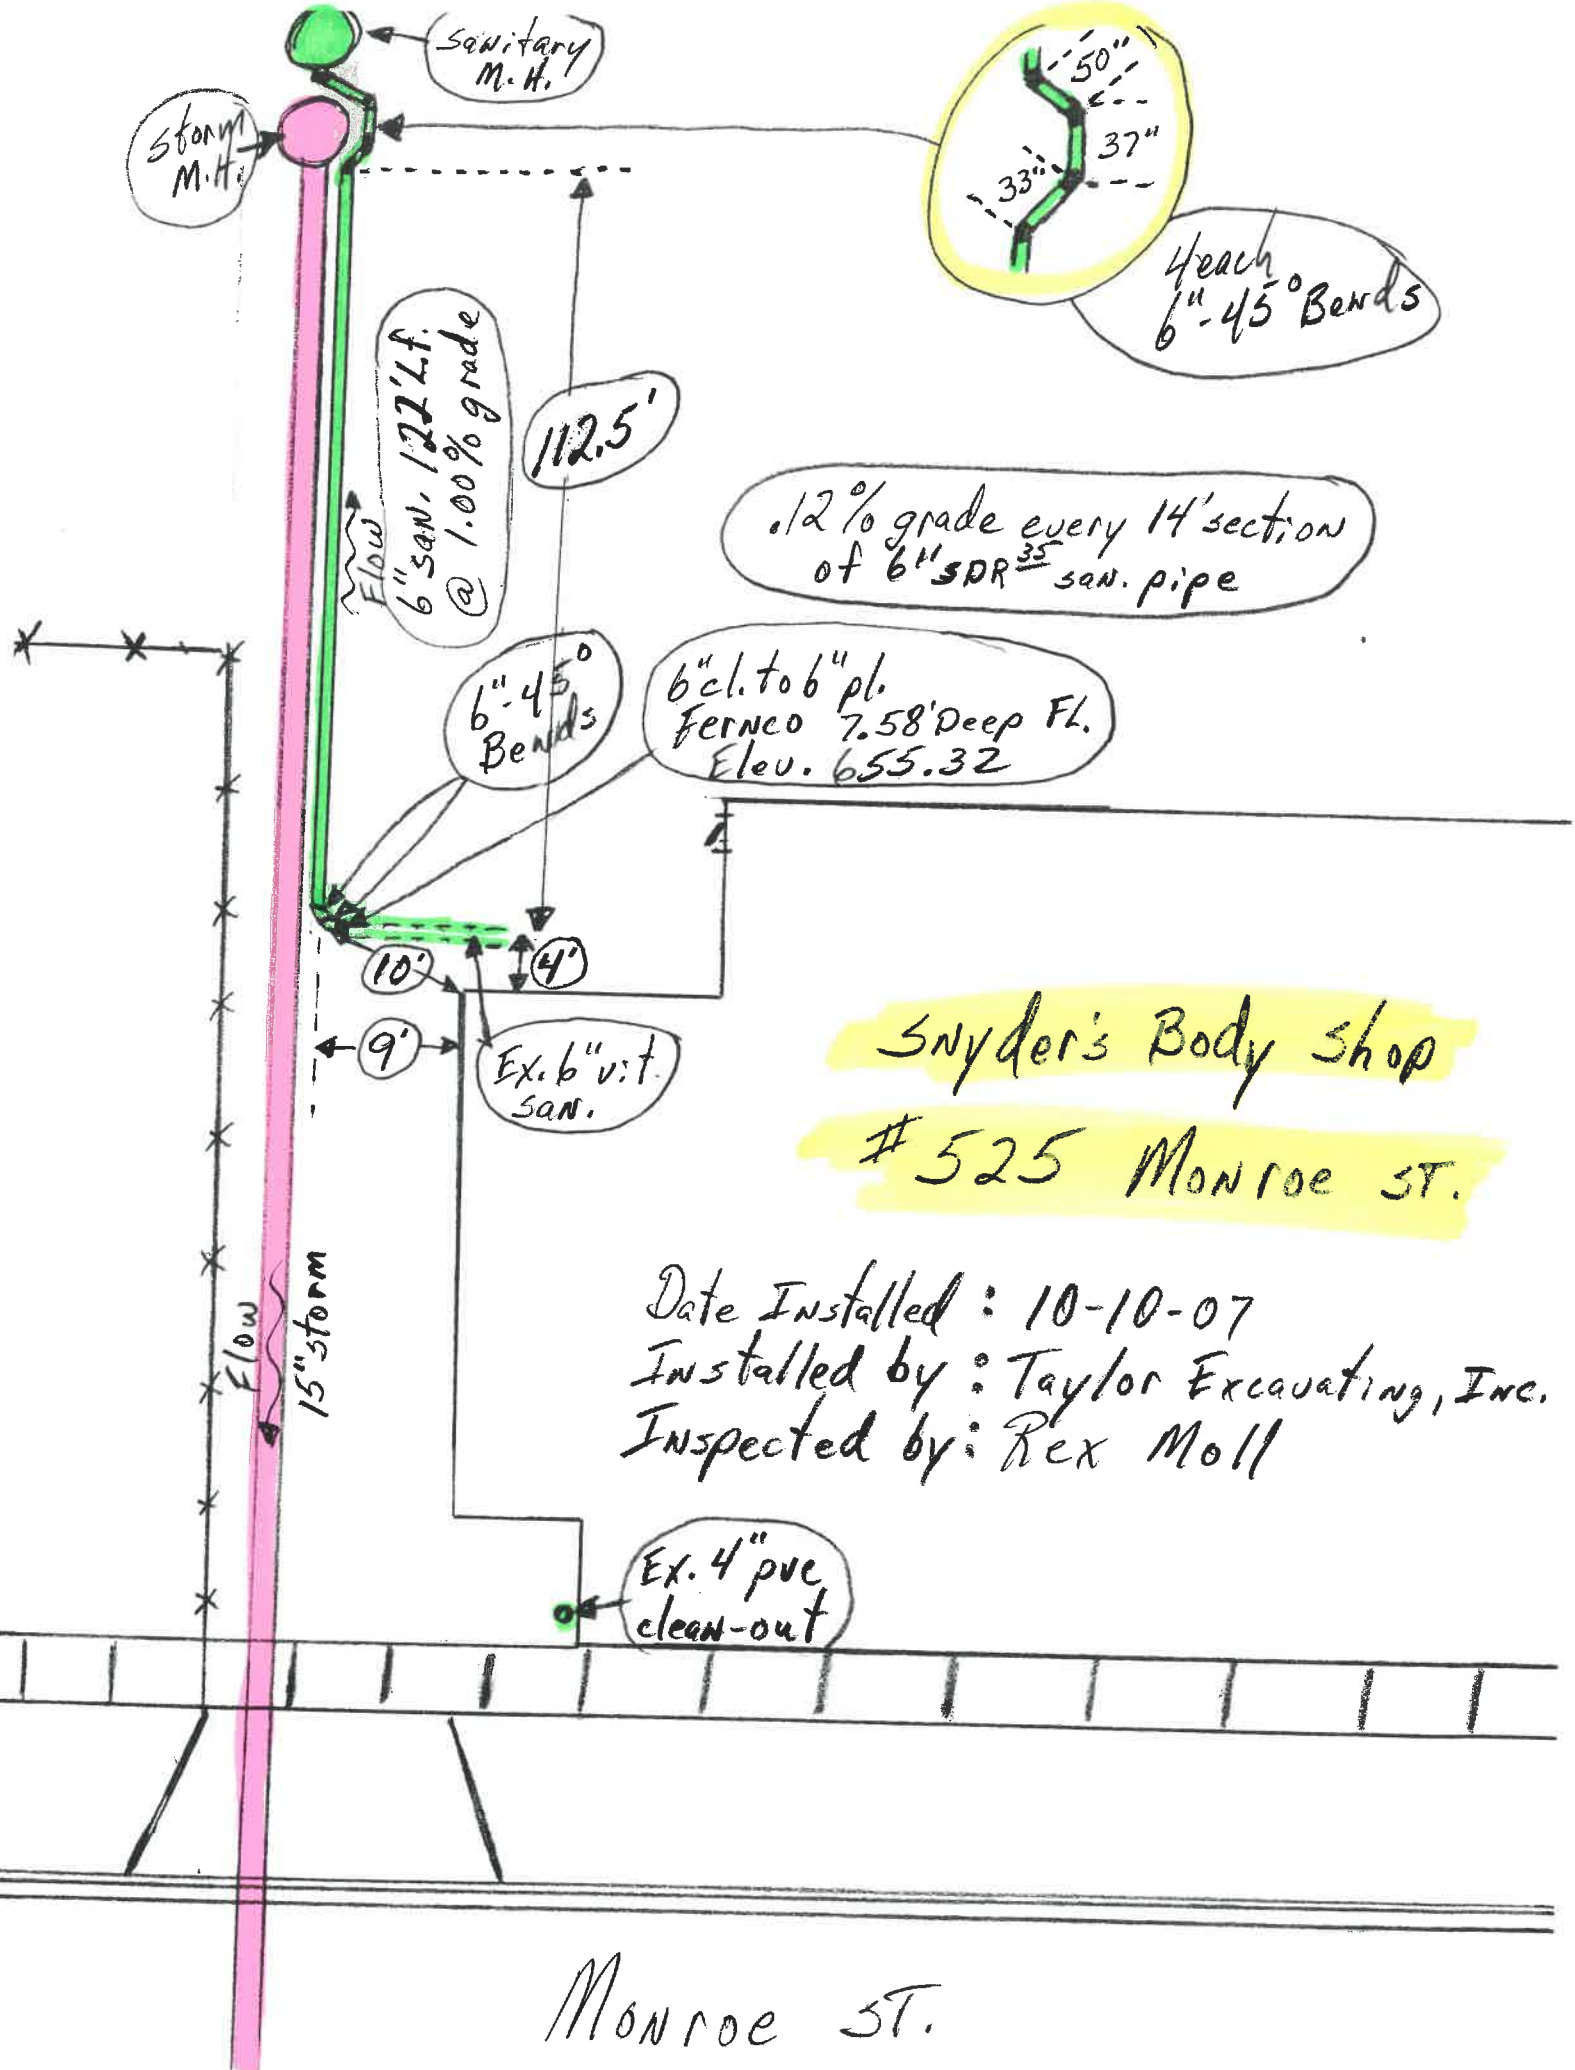 Sanitary
M.H.
Storm
M.H.
50"
37"
33"
4 each
6"-45° Bends
6" san. 122' L.f.
@ 1.00% grade
Flow
112.5'
.12% grade every 14' section
of 6" SDR 35 san. pipe
6"-45°
Bends
6" cl. to 6" pl.
Fernco 7.58' Deep FL.
Elev. 655.32
10'
4'
9'
Ex. 6" vit.
san.
Snyder's Body Shop
# 525 Monroe ST.
Date Installed: 10-10-07
Installed by: Taylor Excavating, Inc.
Inspected by: Rex Moll
Flow
15" storm
Ex. 4" pvc
clean-out
Monroe ST.